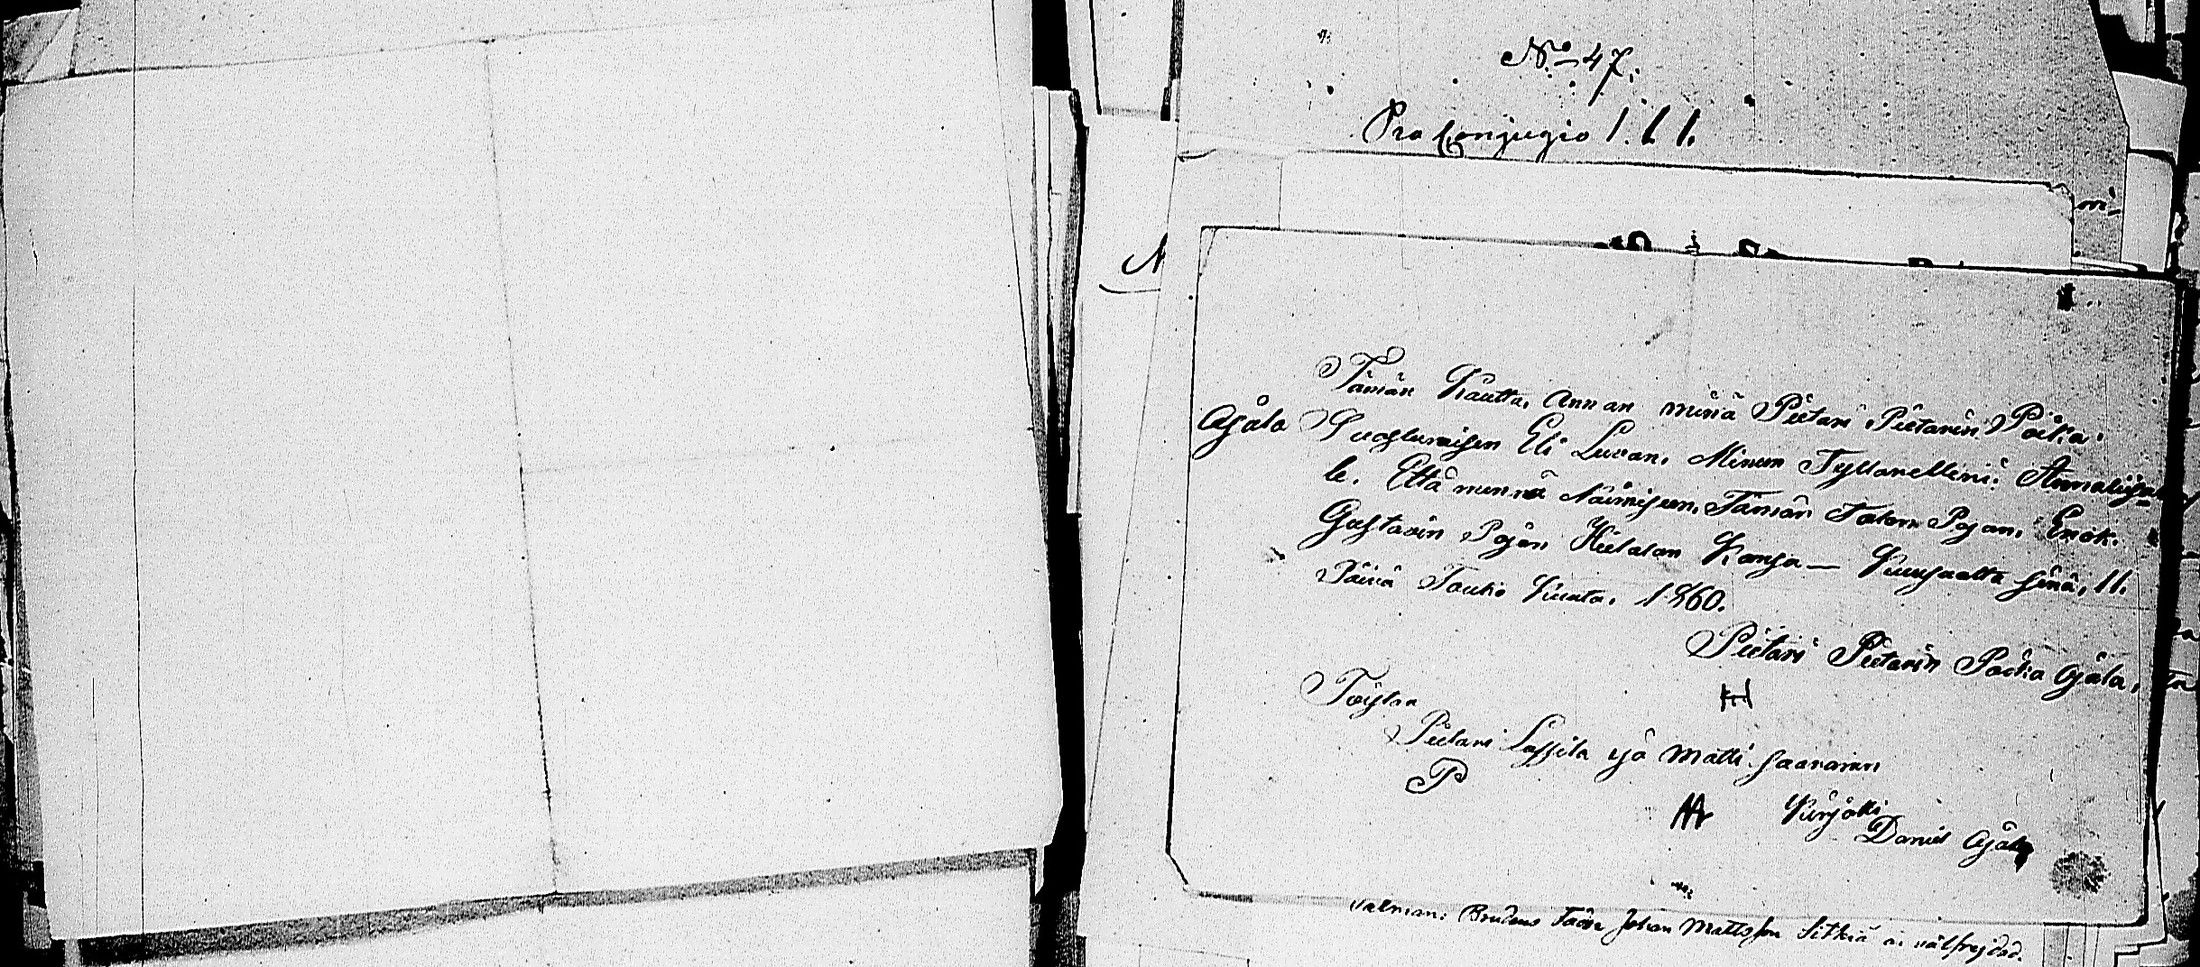 No 47.
Pro Conjugio 1.1.1.
Tämän Kautta, Annan minä Pietari Pietarin Poika
Ajala Suostumisen Eli Luvan, Minun Tyttärelleni: Annaliisal
le. Että mennä Naimiseen, Tämän Talon Pojan, Enok.
Gustavin Pojan Hietalan Kansa — Kuusaalta sinä, 11.
Päivä Touko Kuuta, 1860.
Pietari Pietarin Poika Ajala,
Toistaa
Pietari Lassila ja Matti Saaranen
P
Kirjotti
Daniel Ajala
Brudens Fader Johan Mattsson Sitkiä är välfrejdad.